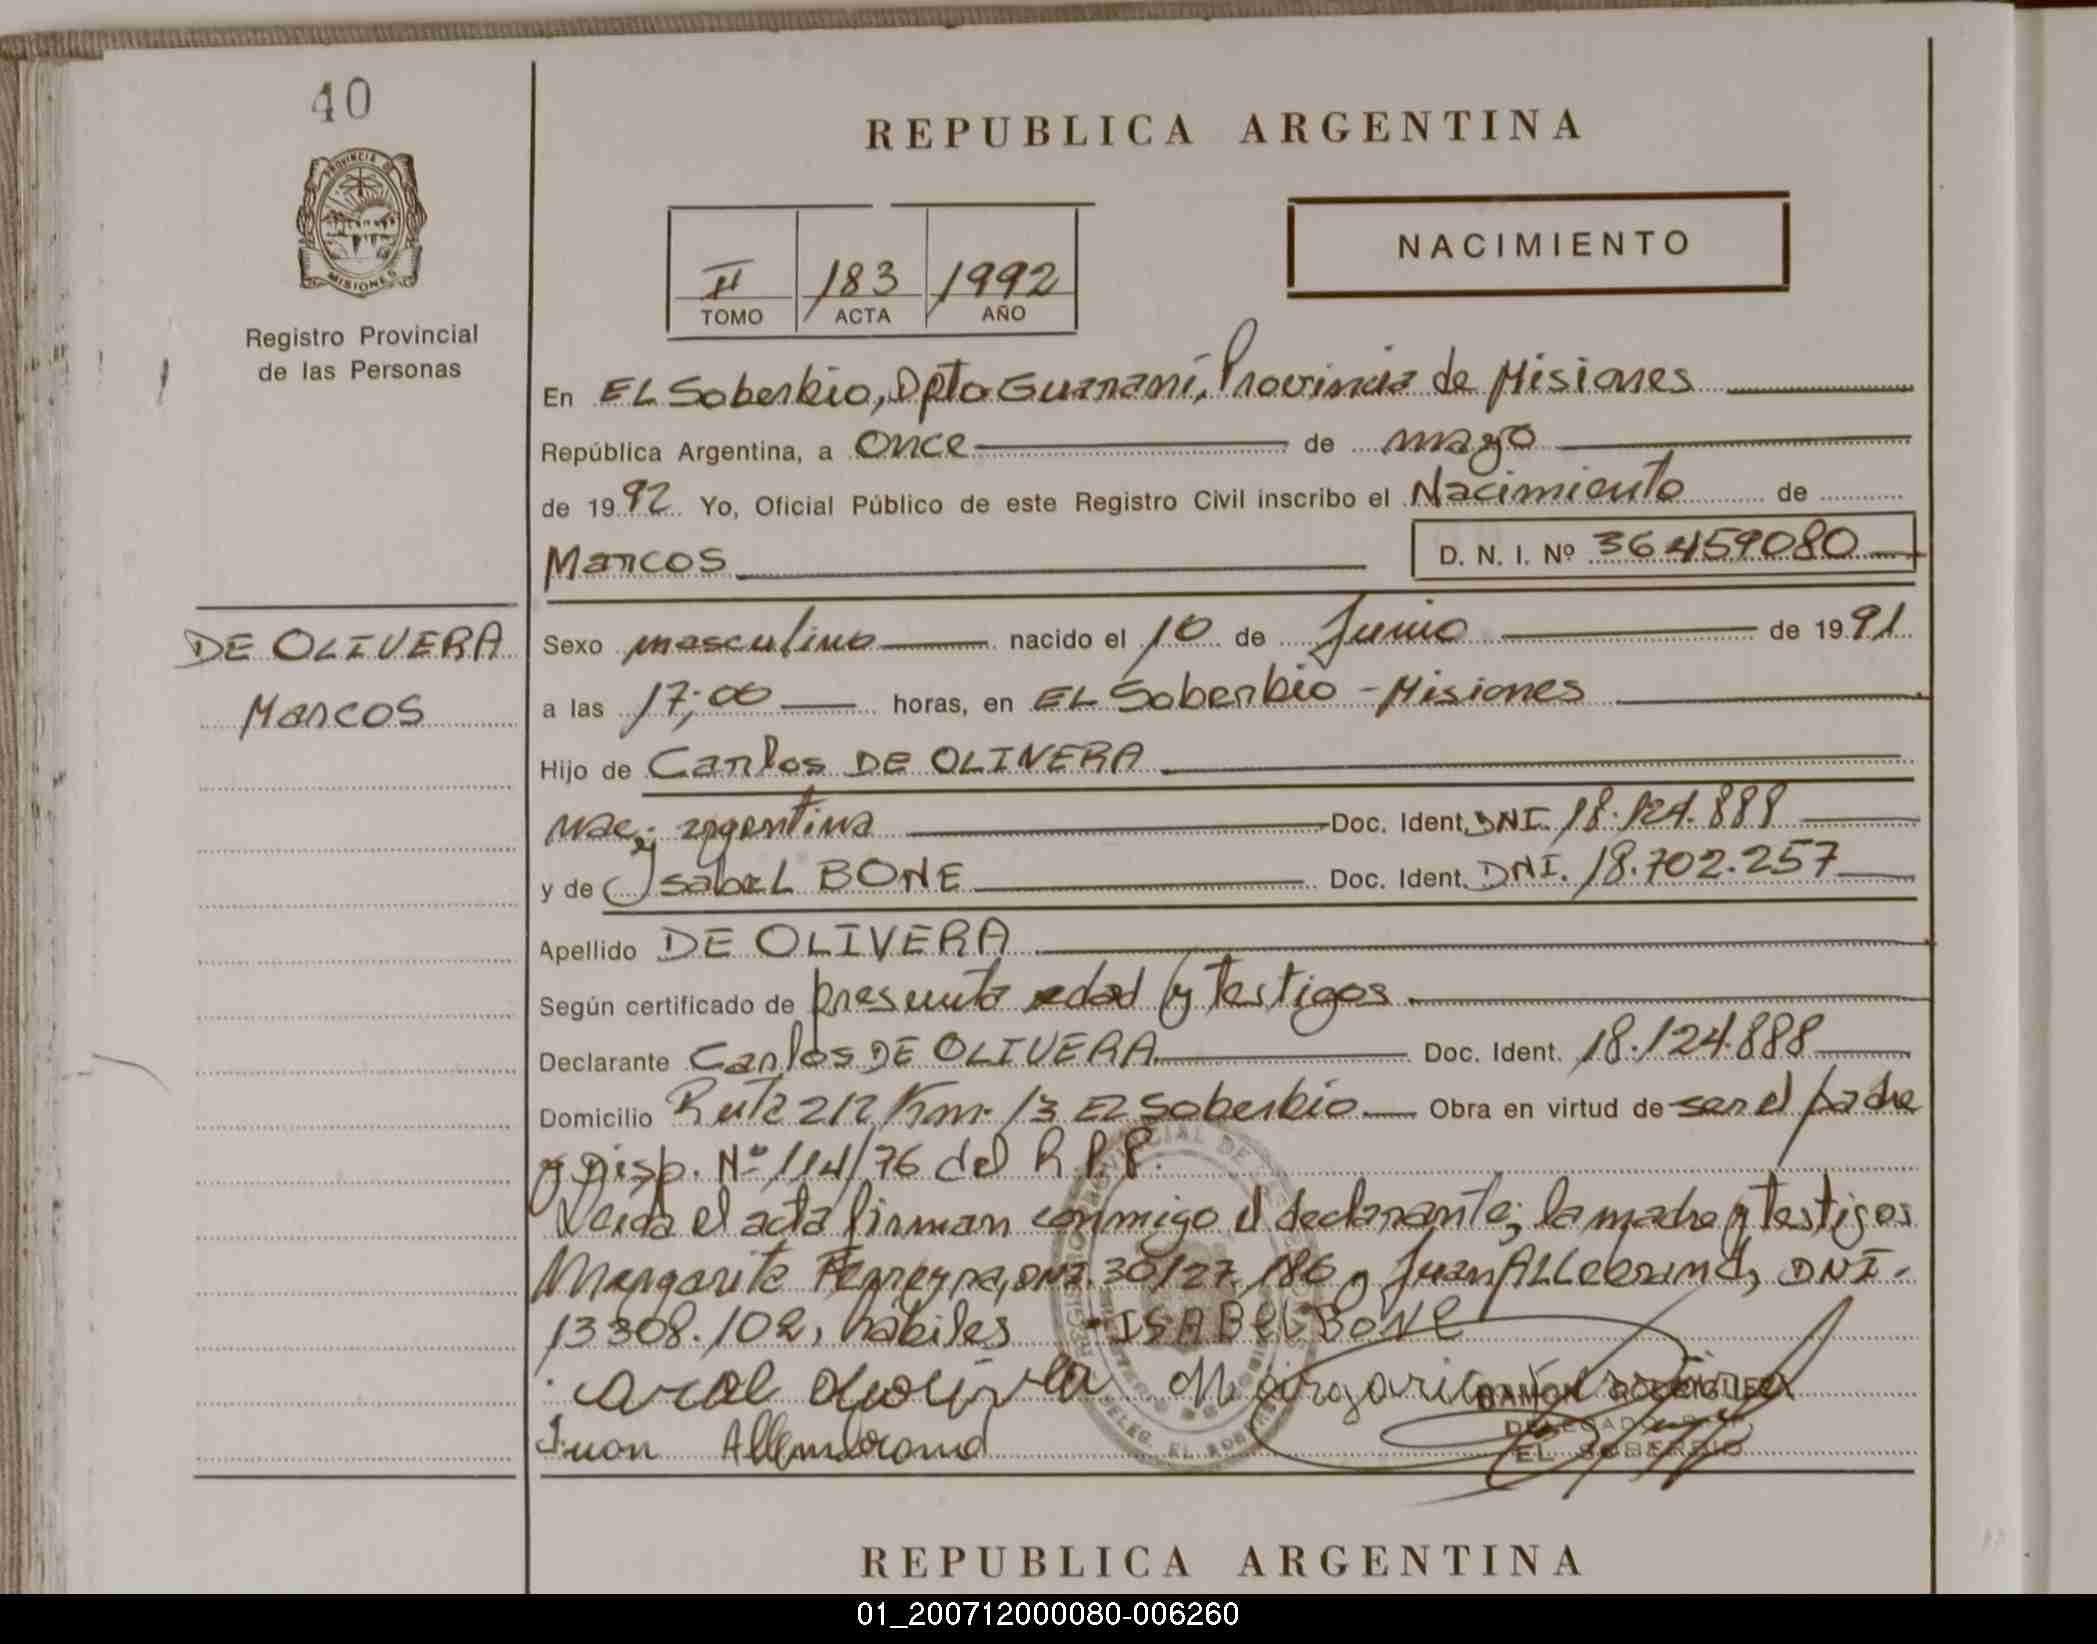 40
PROVINCIA DE
MISIONES
Registro Provincial
de las Personas
REPUBLICA ARGENTINA
II 183 1992
TOMO ACTA AÑO
NACIMIENTO
En EL Soberbio, Dpto Guaraní, Provincia de Misiones
República Argentina, a once de mayo
de 1992 Yo, Oficial Público de este Registro Civil inscribo el Nacimiento de
Marcos D. N. I. Nº 36459080
DE OLIVERA
Marcos
Sexo masculino nacido el 10 de Junio de 1991
a las 17;00 horas, en EL Soberbio - Misiones
Hijo de Carlos DE OLIVERA
nac. argentina Doc. Ident. DNI. 18.124.888
y de Isabel BONE Doc. Ident. DNI. 18.702.257
Apellido DE OLIVERA
Según certificado de presunta edad y testigos
Declarante Carlos DE OLIVERA Doc. Ident. 18.124.888
Domicilio Ruta 212 Km. 13 El Soberbio Obra en virtud de ser el padre
y Disp. Nº 114/76 del R.P.P.
Leida el acta firman conmigo el declarante, la madre y testigos
Margarita Ferreyra, DNI. 30127.186 y Juan ALLebrand, DNI.
13308.102, habiles - ISABEL BONE
Margari
RAMON RODRIGUEZ
DELEGADO
EL SOBERBIO
Juan Allembrand
REPUBLICA ARGENTINA
01_200712000080-006260